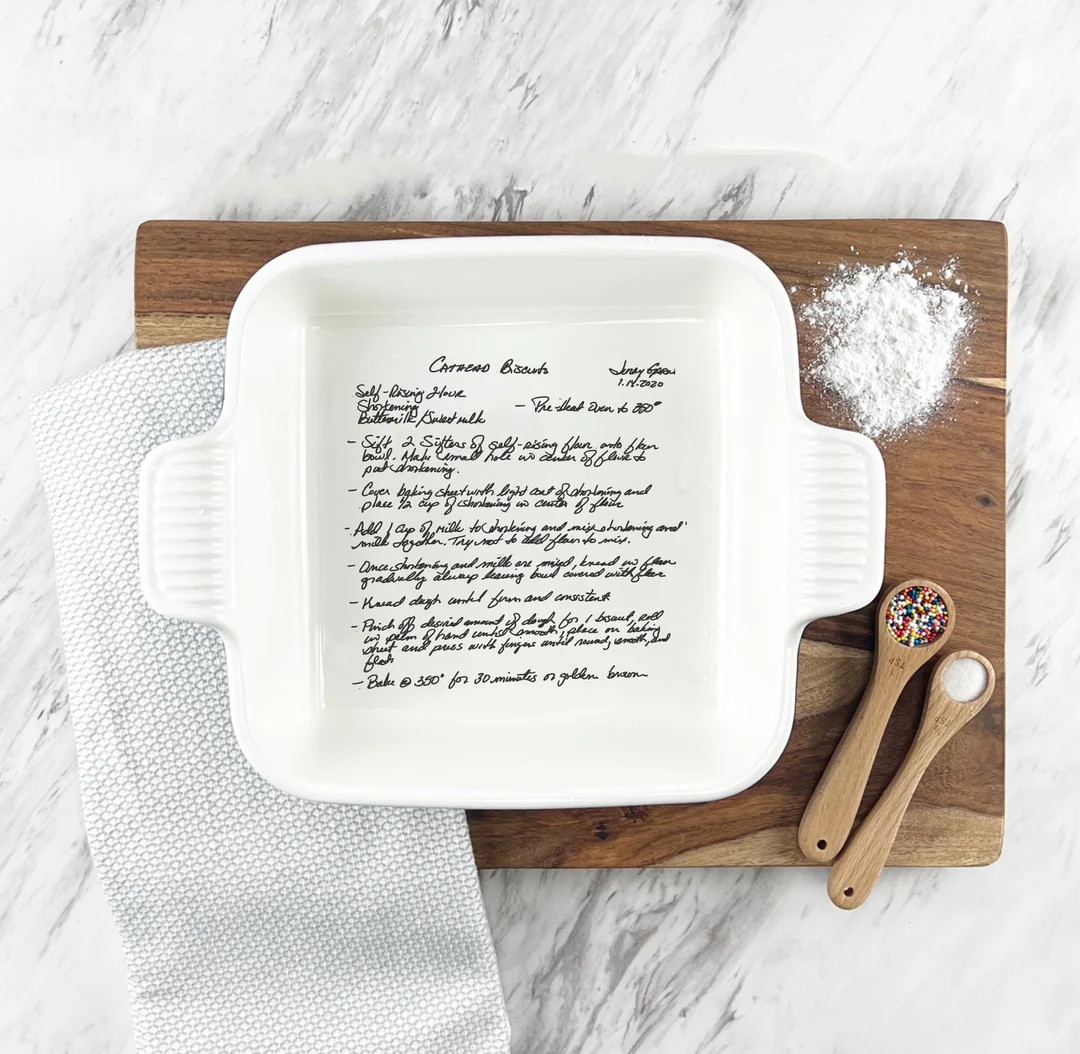 Cathead Biscuits
Jerry
1.14.2020
Self-Rising Flour
Shortening
Buttermilk/Sweet milk
- Pre-Heat Oven to 350°
- Sift 2 Sifters of self-rising flour onto flour
bowl. Make small hole in center of flour to
put shortening.
- Cover baking sheet with light coat of shortening and
place 1/2 cup of shortening in center of flour
- Add 1 cup of milk to shortening and mix shortening and
milk together. Try not to add flour to mix.
- Once shortening and milk are mixed, knead in flour
gradually always leaving bowl covered with flour
- Knead dough until firm and consistent
- Pinch off desired amount of dough for 1 biscuit, roll
in palm of hand until smooth, place on baking
sheet and press with fingers until round, smooth, and
flat
- Bake @ 350° for 30 minutes or golden brown
1
TSP
TSP